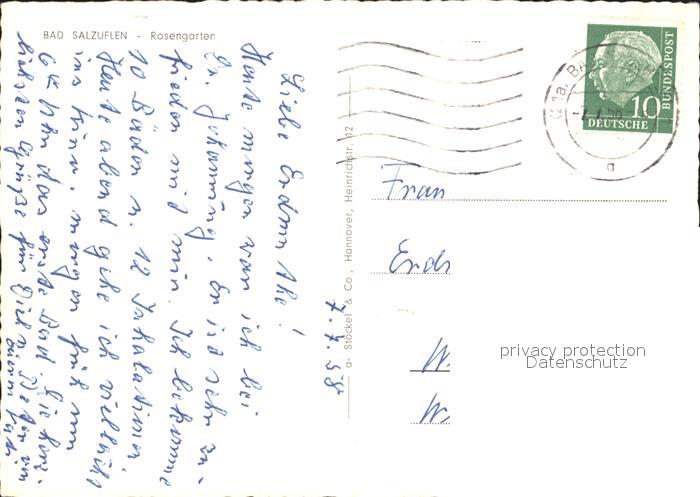 BAD SALZUFLEN - Rosengarten
Liebe
Heute morgen war ich bei
Dr. Er ist sehr zu-
frieden mit mir. Ich bekomme
10 Bäder u. 12 Inhalationen.
Heute abend gehe ich vielleicht
ins Kino. morgen früh um
das erste Bad. Die herz-
lichsten Grüße für Dich
7. 7. 58
a- Stöckel & Co., Hannover, Heinrichstr. 12
BAD
DEUTSCHE
BUNDESPOST
10
a
Frau
W.
W.
privacy protection
Datenschutz